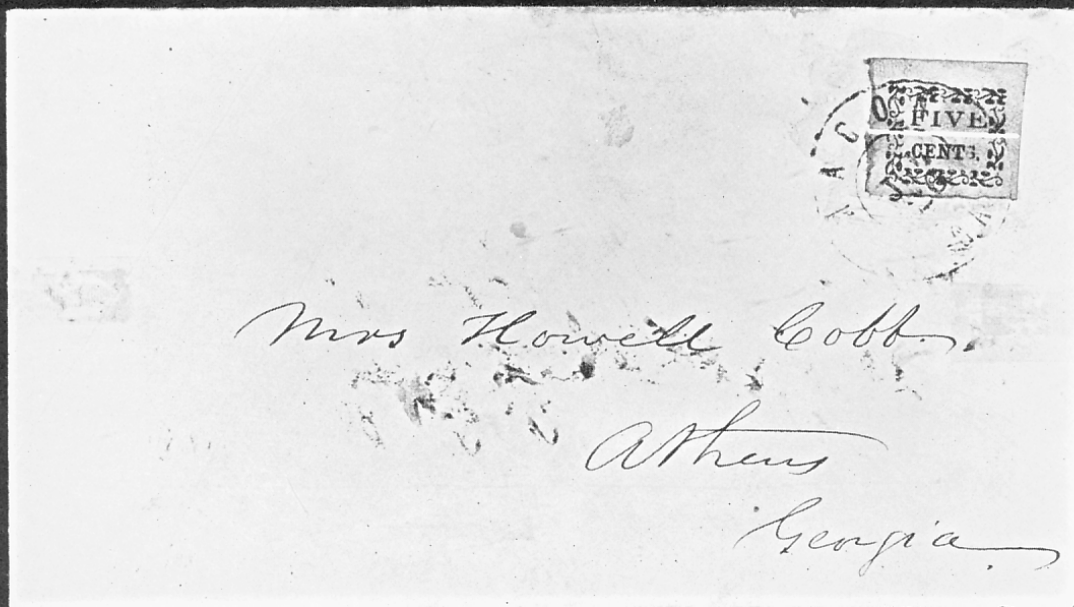 MACON GA
FIVE
CENTS.
Mrs Howell Cobb.
Athens
Georgia